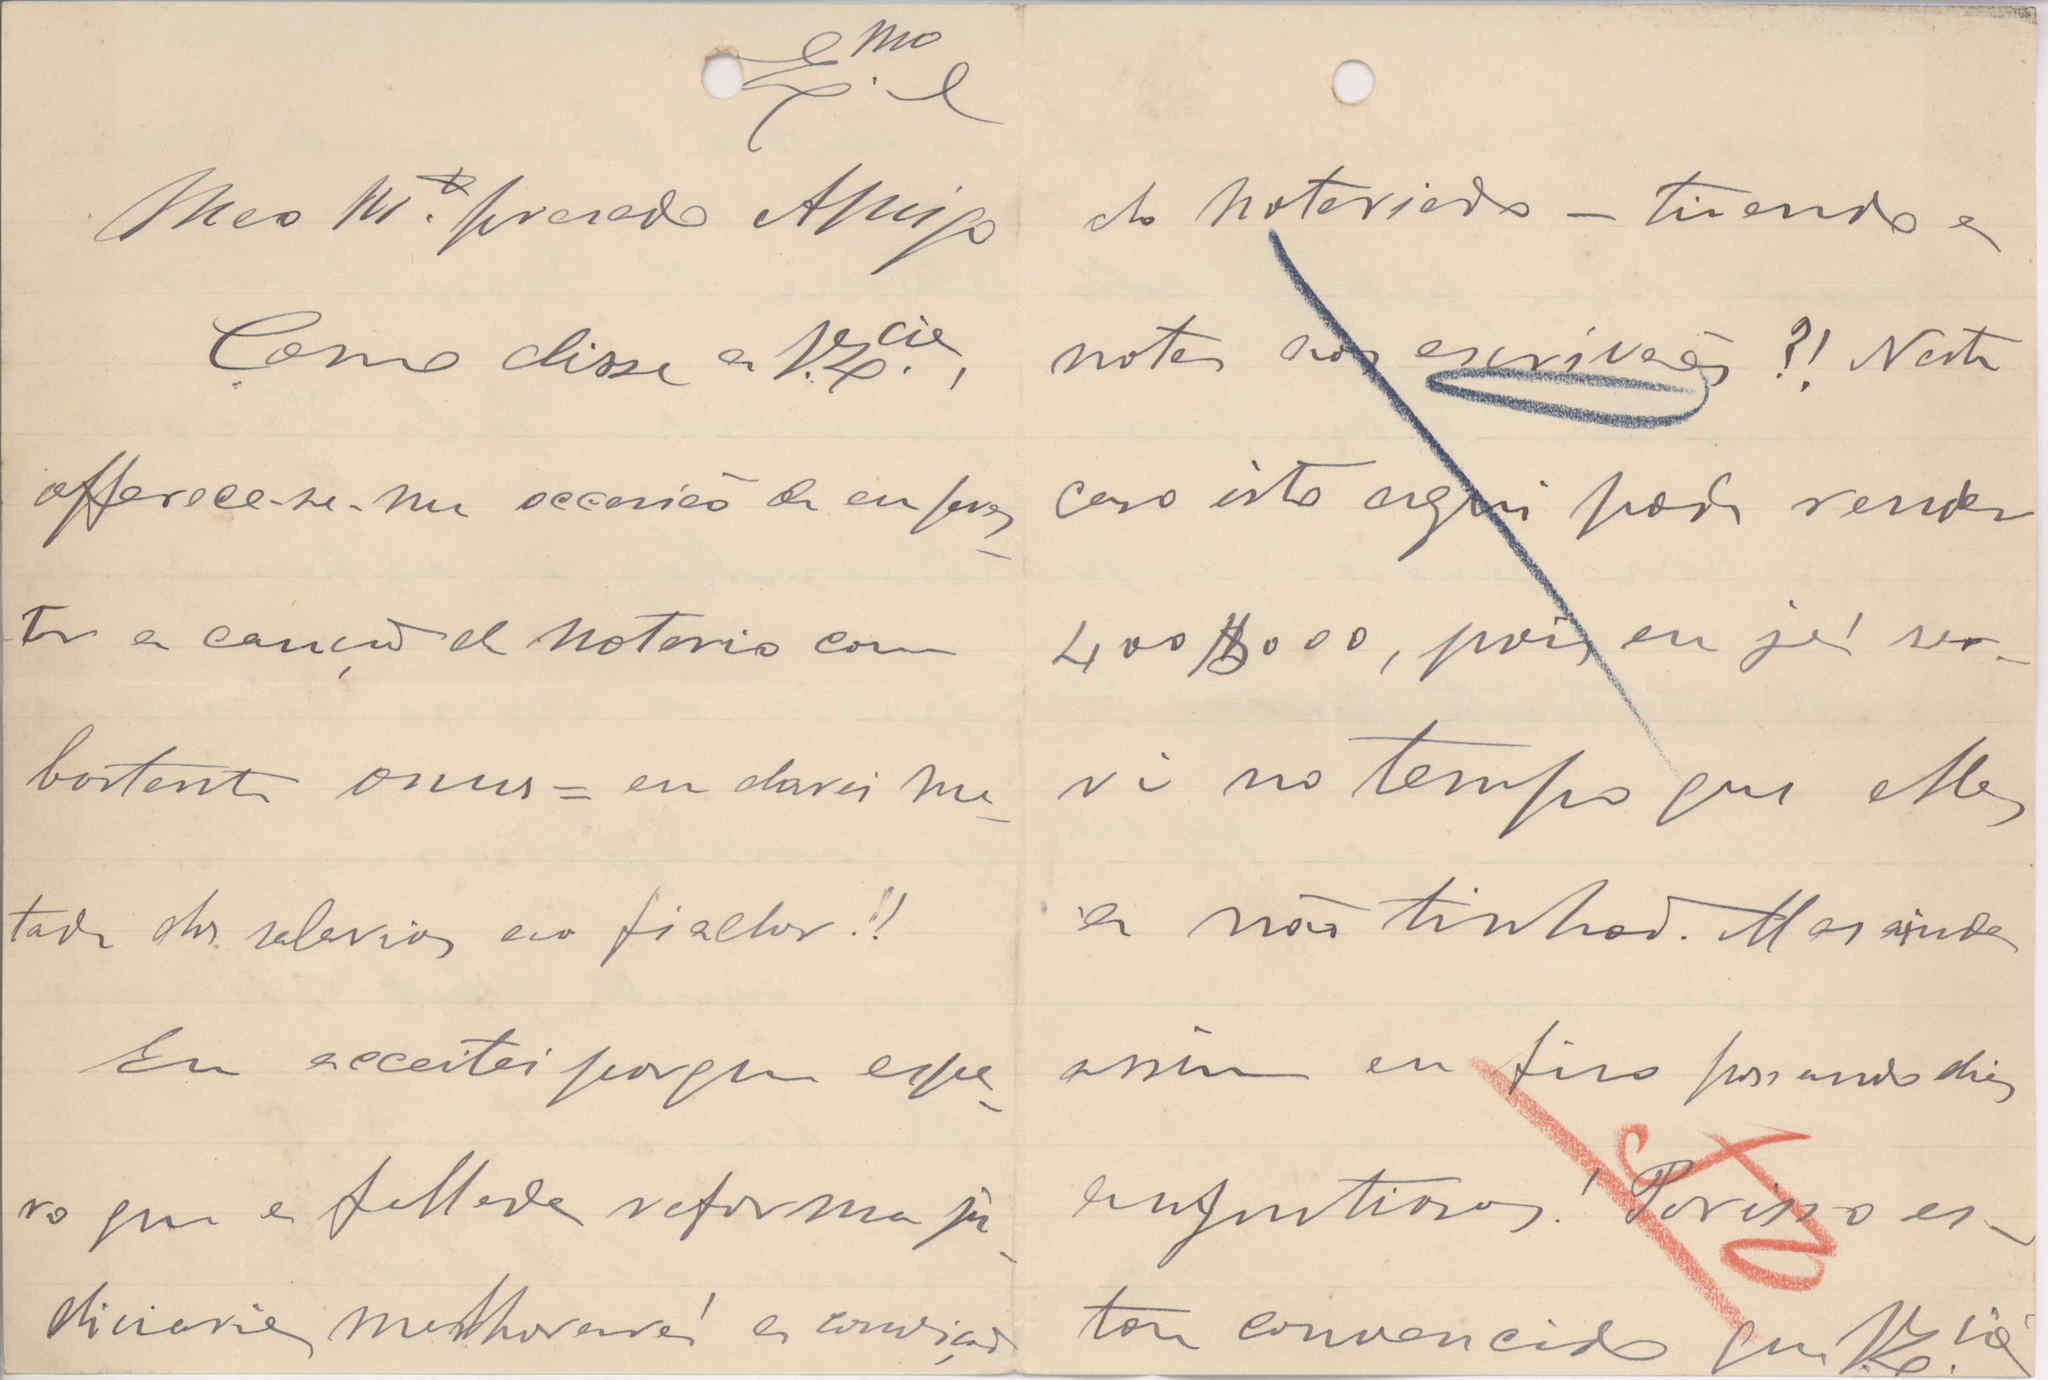 Meo m.to presado Amigo
Como disse a V. Ex.cia,
offerece-se-me occasião de eu pres-
tar a caução de notario com
bastante onus = eu darei me-
tade dos salarios ao fiador!!
Eu acceitei porque espe-
ro que a fallada reforma ju-
diciaria melhorará a condição
do notariado — tirando a
notas aos escrivães?! Neste
caso isto aqui pode render
400$000, pois eu já ser-
vi no tempo que elles
a não tinhão. Mas ainda
assim eu fico passando dias
angustiosos! Por isso es-
tou convencido que V. Ex.cia